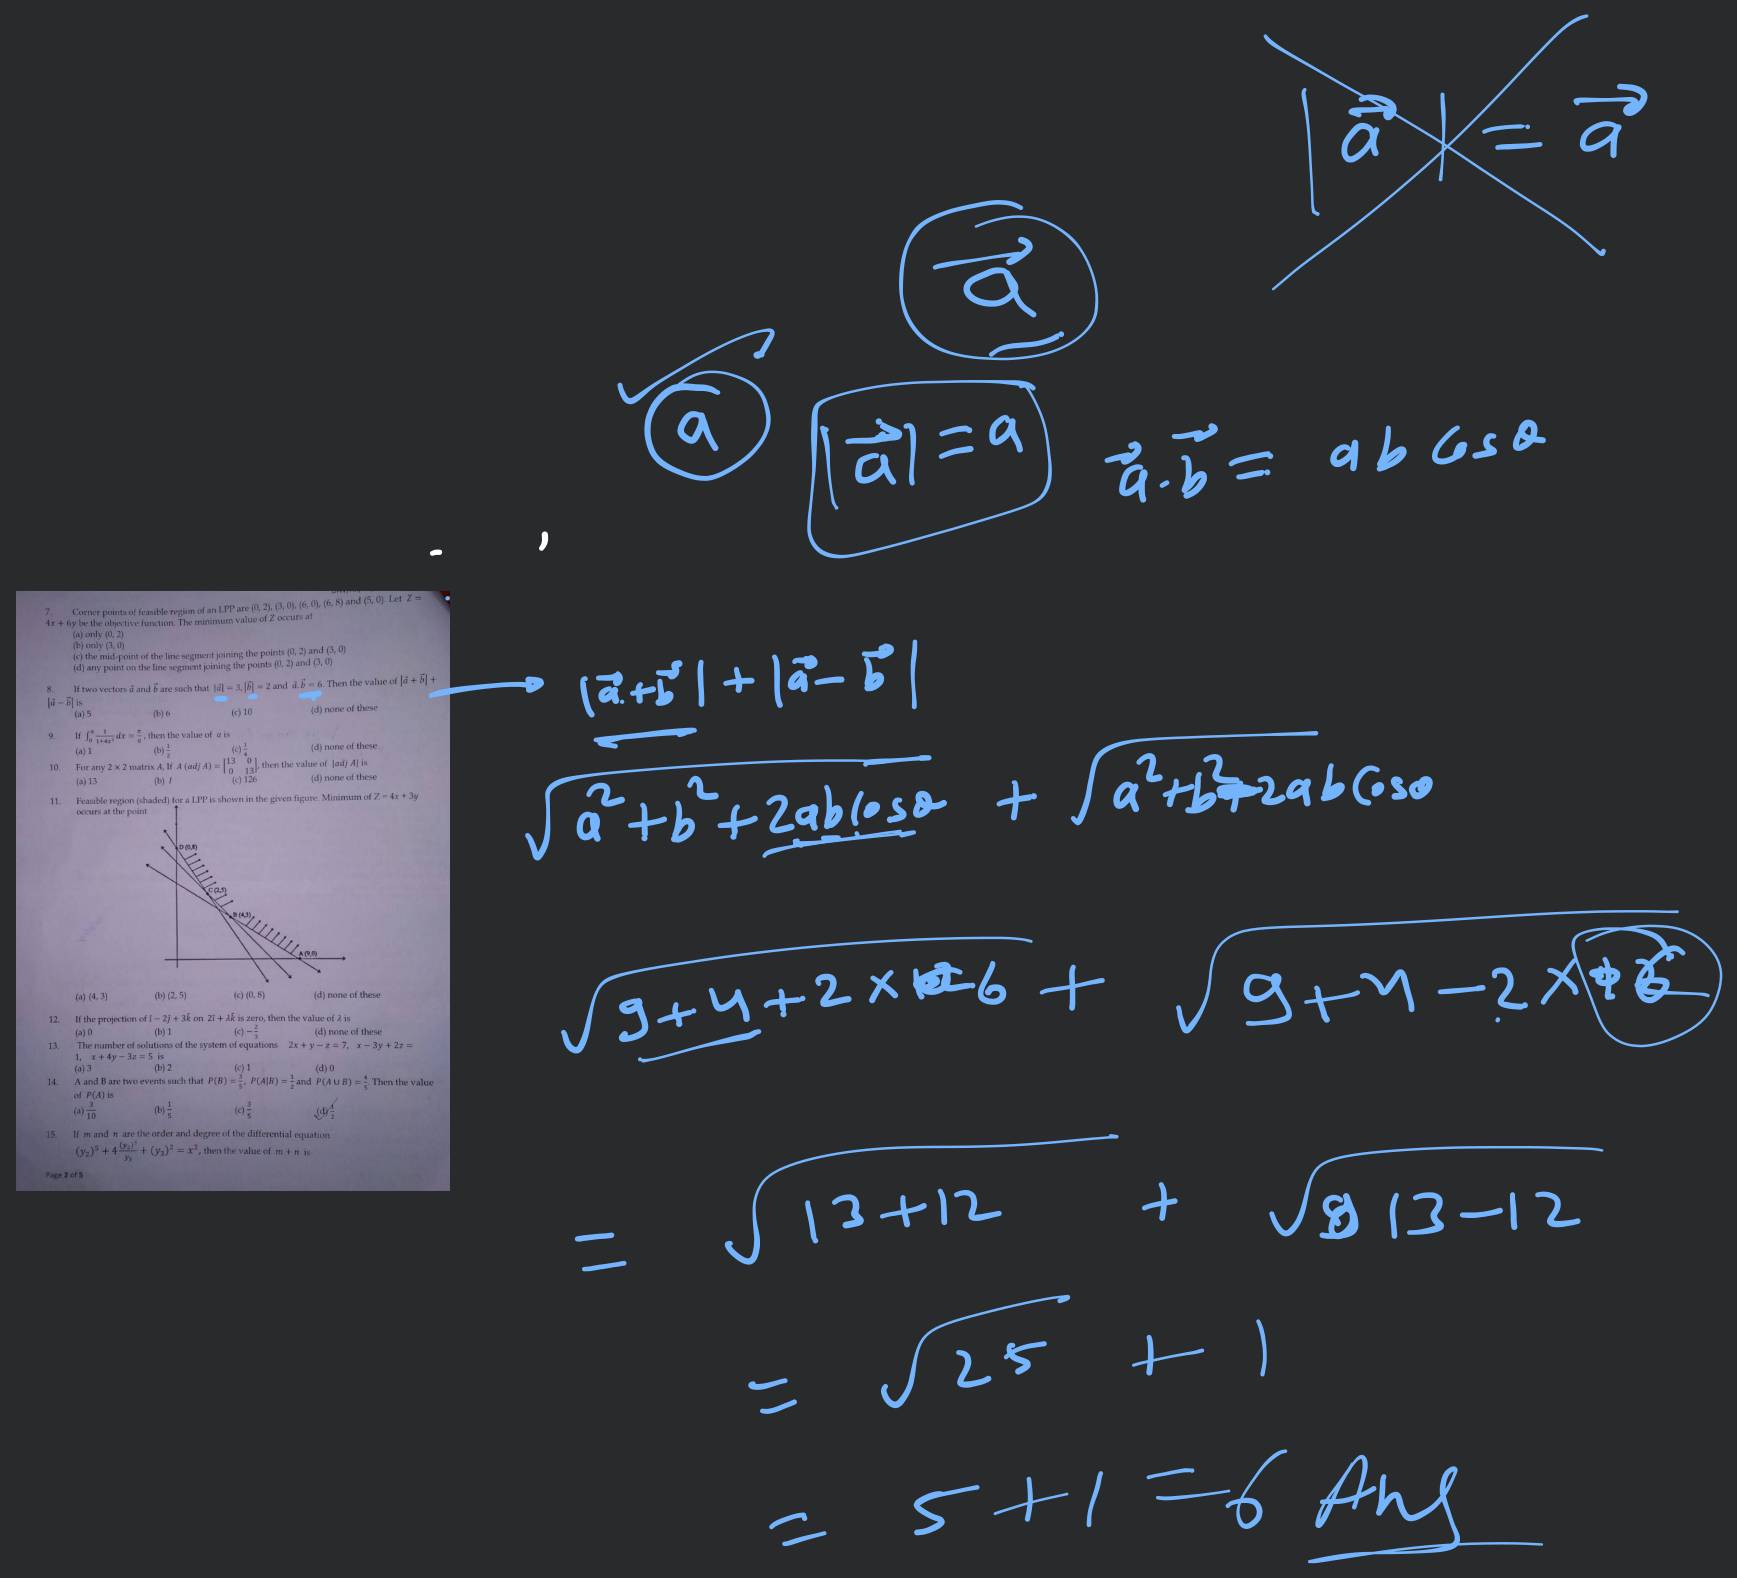 |a⃗| = a⃗
a⃗
a
|a⃗| = a
a⃗.b⃗ = ab Cosθ
7. Corner points of feasible region of an LPP are (0, 2), (3, 0), (6, 0), (6, 8) and (5, 0). Let Z =
4x + 6y be the objective function. The minimum value of Z occurs at
(a) only (0, 2)
(b) only (3, 0)
(c) the mid-point of the line segment joining the points (0, 2) and (3, 0)
(d) any point on the line segment joining the points (0, 2) and (3, 0)
8. If two vectors a⃗ and b⃗ are such that |a⃗| = 3, |b⃗| = 2 and a⃗.b⃗ = 6. Then the value of |a⃗ + b⃗| +
|a⃗ − b⃗| is
(a) 5 (b) 6 (c) 10 (d) none of these
9. If ∫₀ᵃ 1/(1+4x²) dx = π/8, then the value of a is
(a) 1 (b) 1/2 (c) 1/4 (d) none of these
10. For any 2 × 2 matrix A, If A (adj A) = [13 0; 0 13], then the value of |adj A| is
(a) 13 (b) 1 (c) 126 (d) none of these
11. Feasible region (shaded) for a LPP is shown in the given figure. Minimum of Z = 4x + 3y
occurs at the point
D (0,8)
C (2,5)
B (4,3)
A (9,0)
(a) (4, 3) (b) (2, 5) (c) (0, 8) (d) none of these
12. If the projection of î − 2ĵ + 3k̂ on 2î + λk̂ is zero, then the value of λ is
(a) 0 (b) 1 (c) −2/3 (d) none of these
13. The number of solutions of the system of equations 2x + y − z = 7, x − 3y + 2z =
1, x + 4y − 3z = 5 is
(a) 3 (b) 2 (c) 1 (d) 0
14. A and B are two events such that P(B) = 3/5, P(A|B) = 1/2 and P(A ∪ B) = 4/5. Then the value
of P(A) is
(a) 3/10 (b) 1/5 (c) 3/5 (d) 1/2
15. If m and n are the order and degree of the differential equation
(y₂)⁵ + 4 (y₂)³/y₃ + (y₃)² = x², then the value of m + n is
Page 2 of 5
|a⃗+b⃗| + |a⃗−b⃗|
√(a²+b²+2abCosθ) + √(a²+b²−2abCosθ)
√(9+4+2×6) + √(9+4−2×6)
= √(13+12) + √(13−12)
= √25 + 1
= 5+1 = 6 Ans